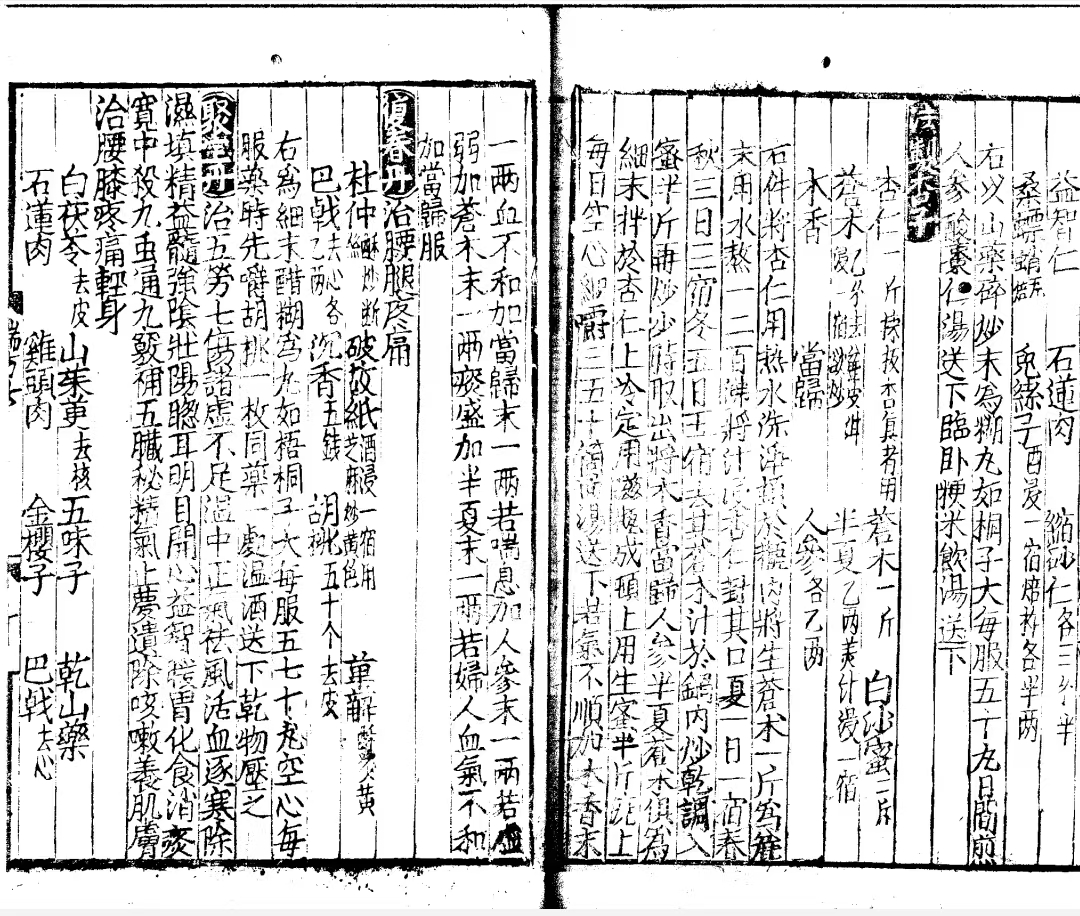 益智仁 石蓮肉 縮砂仁各三
桑螵蛸 兎絲子酉浸一宿焙 各半两
右以山藥 炒末為糊丸如桐子大每服五十丸日間煎
人參酸棗仁湯送下臨卧粳米飲湯送下
法製
杏仁一斤 蒼木一斤 白沙蜜一斤
蒼木 半夏乙两 浸一宿
木香 當歸 人參各乙两
右件将杏仁用热水洗净 将生蒼术一斤為
末用水熬一二百沸将汁 杏仁對其口夏一日一宿春
秋三日三宿冬五日五宿去其蒼术汁於鍋内炒乾調入
蜜半斤再炒少時取出将木香當歸人參半夏蒼木俱為
細末拌於杏仁上冷定用 成頓上用生蜜半斤 上
每日空心細嚼三五十箇 湯送下若氣不順加木香末
一两血不和加當歸末一两若喘息加人參末一两若虛
弱加蒼木末一两痰盛加半夏末一两若婦人血氣不和
加當歸服
復春丹治腰腿疼痛
杜仲酥炒断絲 破故紙酒浸一宿用芝麻炒黄色 萆薢 酥炙黄
巴戟去心各乙两 沉香五錢 胡桃五十个去皮
右為細末醋糊為丸如梧桐子大每服五七十丸空心每
服藥時先嚼胡桃一枚同藥一處温酒送下乾物壓之
聚宝丹治五勞七傷諸虚不足温中正氣祛風活血逐寒除
濕填精益髓強陰壯陽聰耳明目開心益智 胃化食消痰
寬中殺九虫通九竅補五臟秘精氣止夢遺除咳嗽養肌膚
治腰膝疼痛輕身
白茯苓去皮 山茱萸去核 五味子 乾山藥
石蓮肉 雞頭肉 金櫻子 巴戟去心